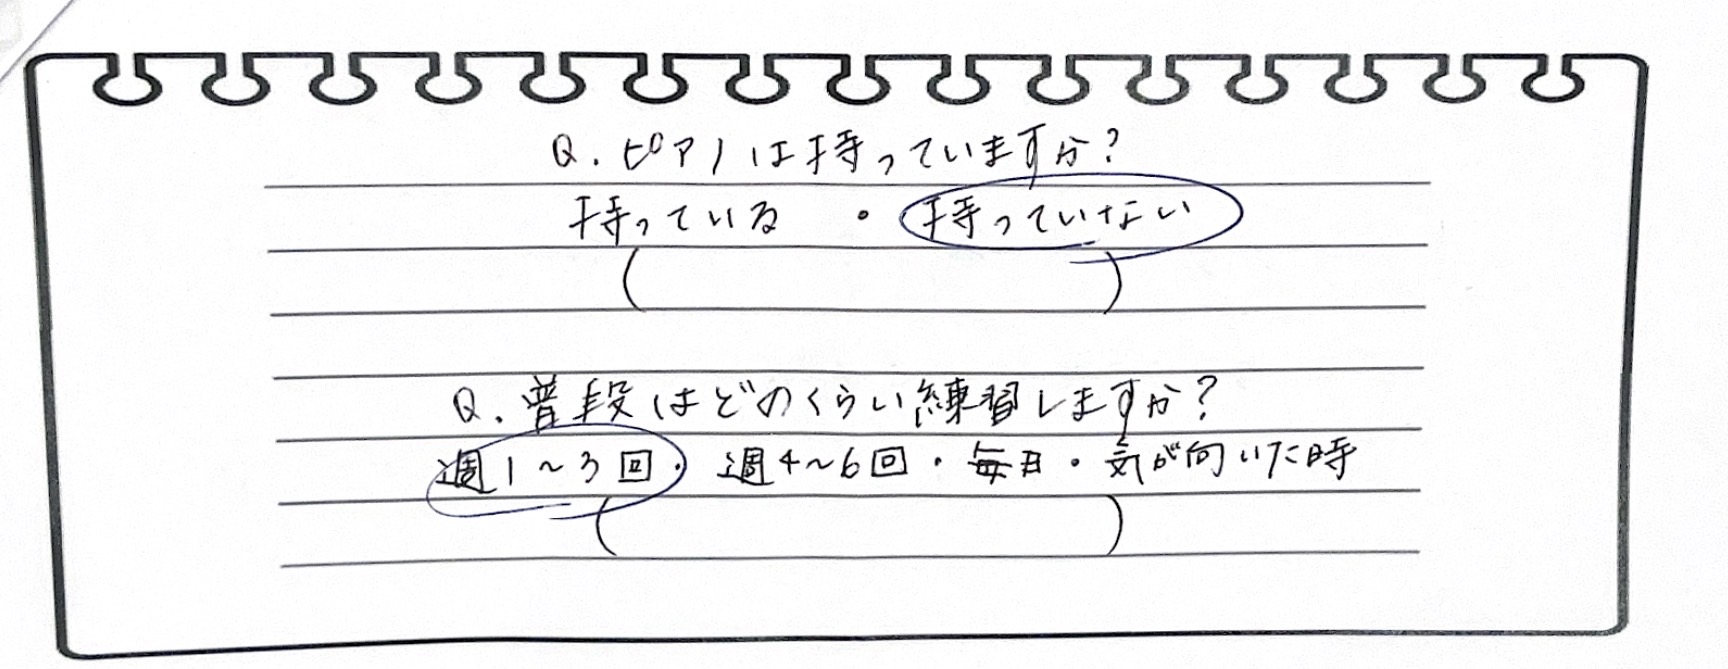 Q. ピアノは持っていますか?
持っている ・ 持っていない
( )
Q. 普段はどのくらい練習しますか?
週1~3回・週4~6回・毎日・気が向いた時
( )